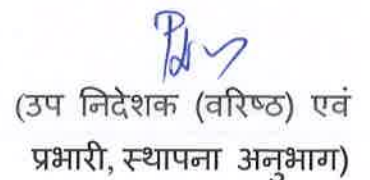 (उप निदेशक (वरिष्ठ) एवं
प्रभारी, स्थापना अनुभाग)